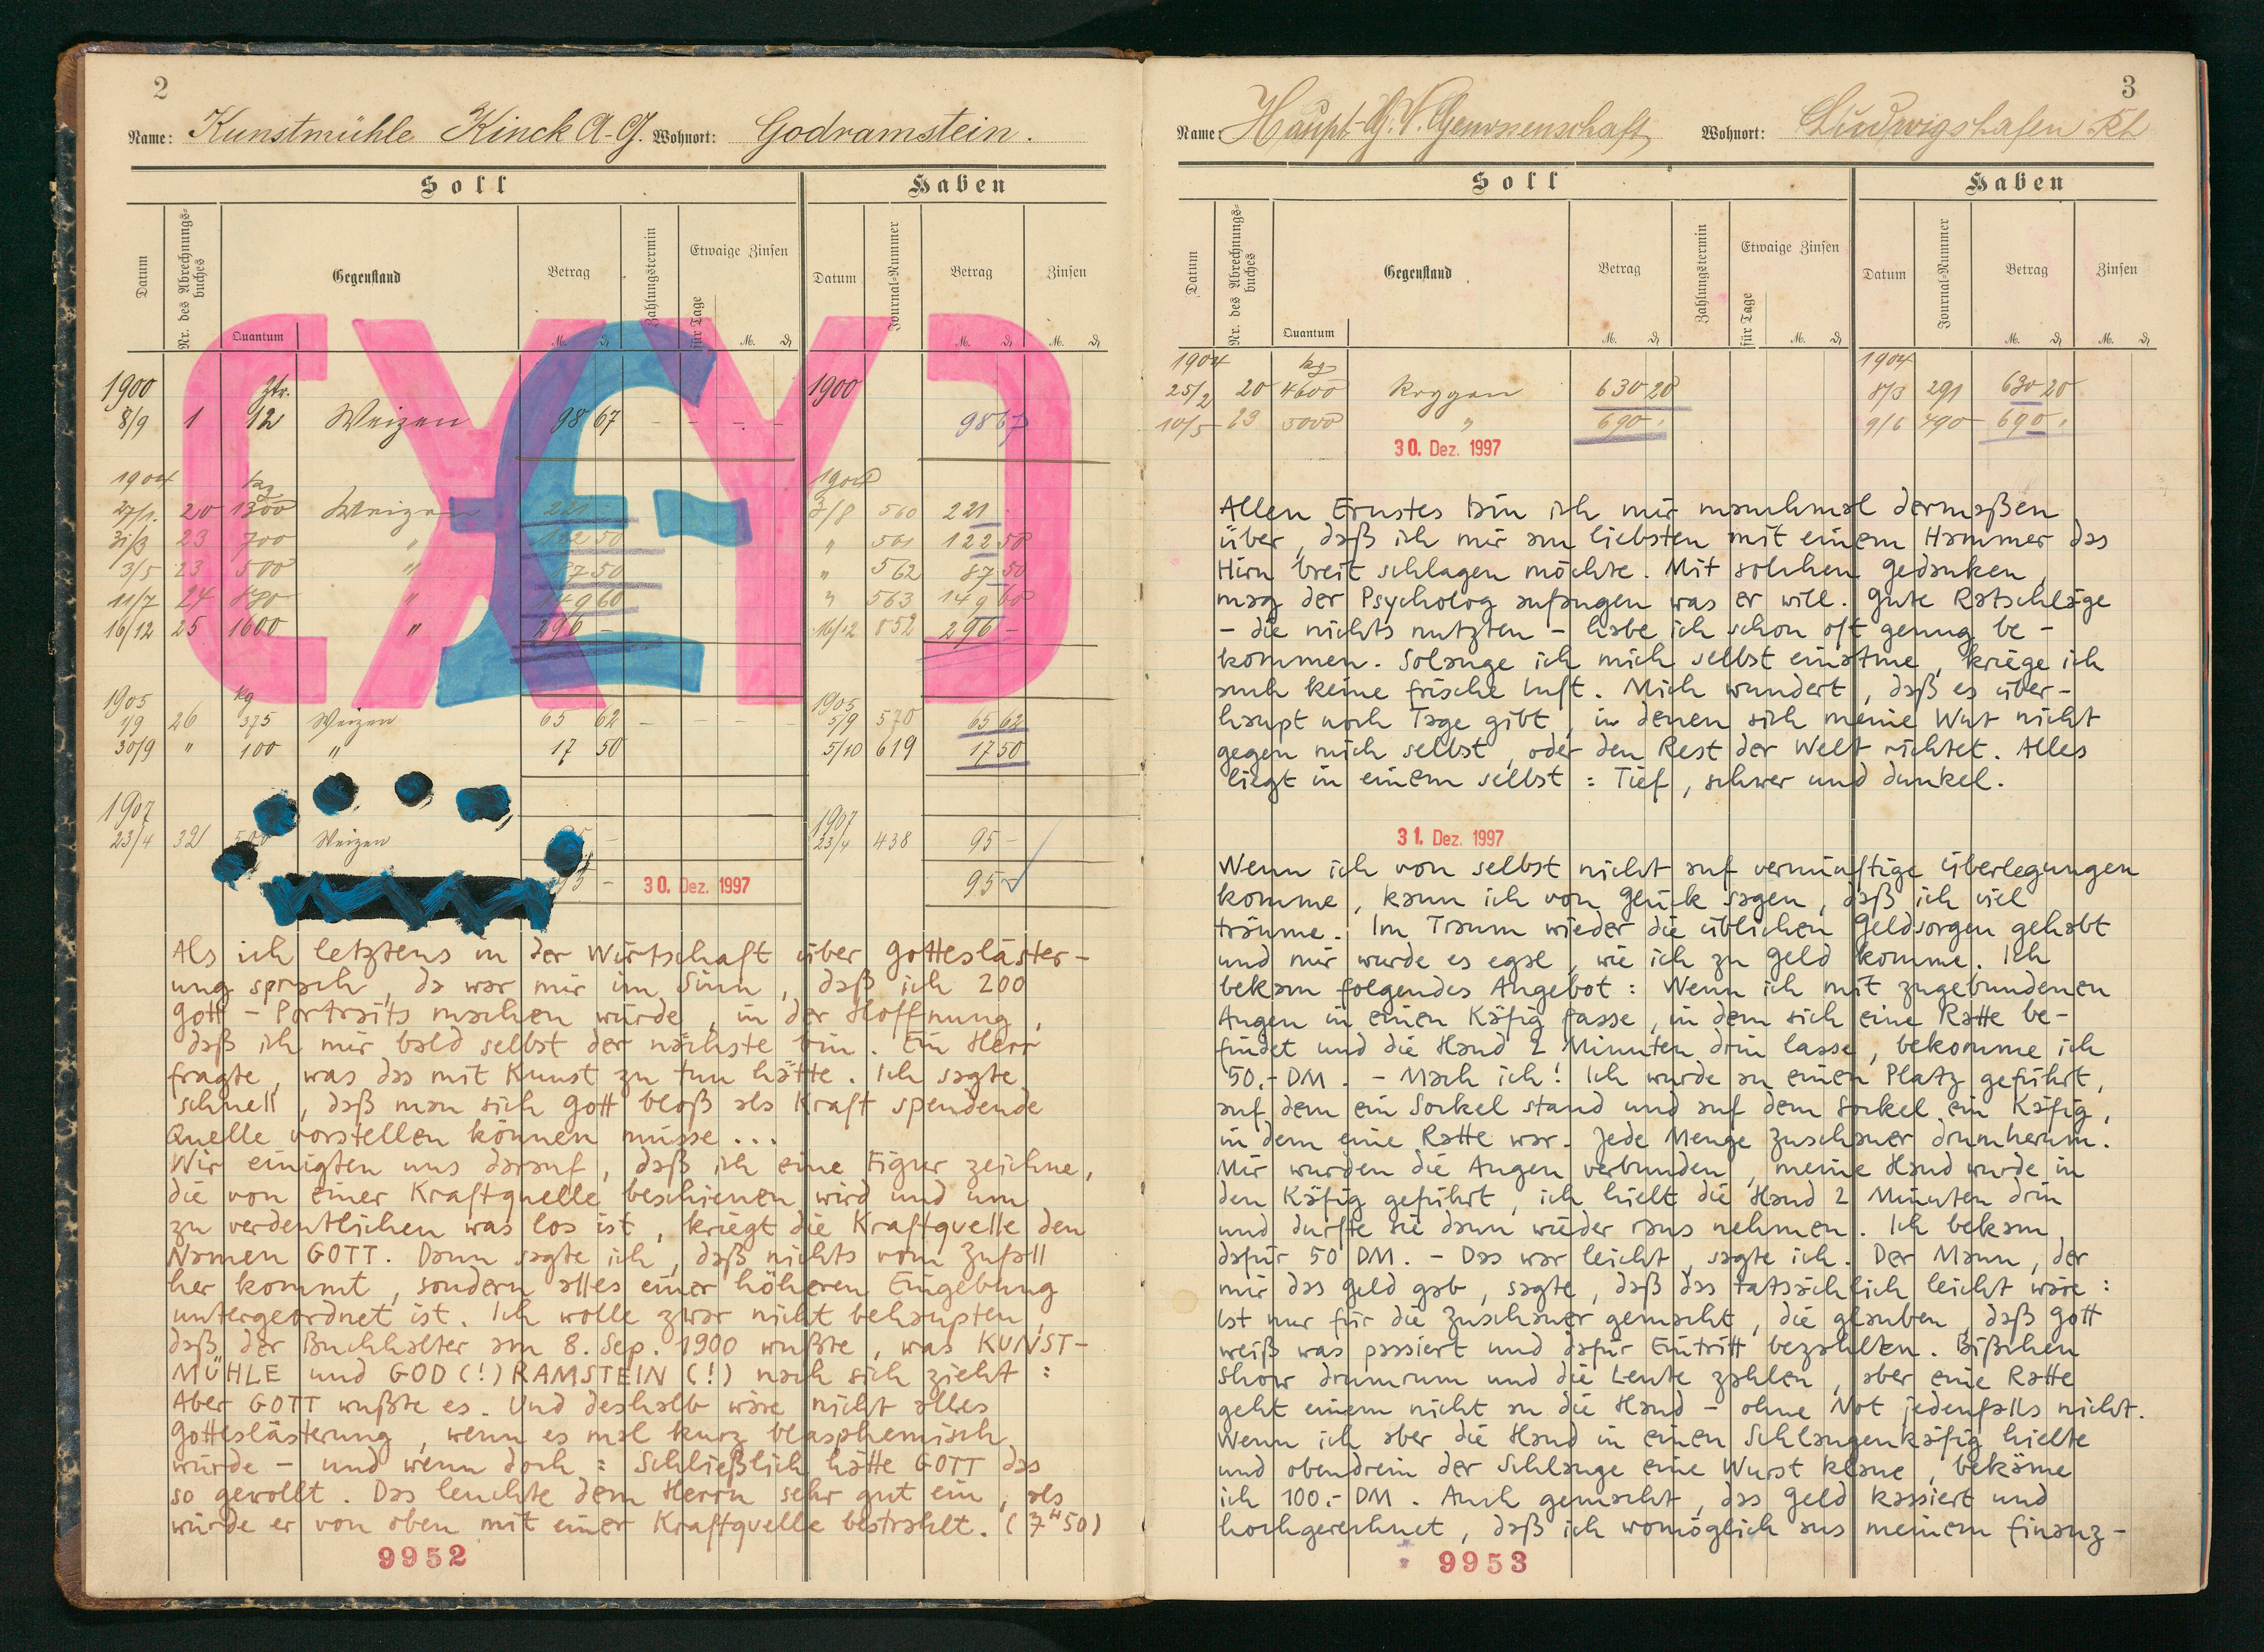 2
Name: Kunstmühle Kinck A-G. Wohnort: Godramstein.
Soll Haben
Datum Nr. des Abrechnungs-buches Gegenstand Betrag Zahlungstermin Etwaige Zinsen Datum Journal-Nummer Betrag Zinsen
Quantum M. ₰ für Tage M. ₰ M. ₰ M. ₰
1900 Ztr. 1900
8/9 1 12 Weizen 98 67 – – – – 98 67
1904 kg 1904
27/1. 20 1300 Weizen 221 3/8 560 221
31/3 23 700 " 122 50 " 561 122 50
3/5 23 500 " 87 50 " 562 87 50
11/7 24 880 " 149 60 " 563 149 60
16/12 25 1600 " 296 – 16/12 852 296 –
1905 kg 1905
1/9 26 375 Weizen 65 62 – – – – 5/9 570 65 62
30/9 " 100 " 17 50 5/10 619 17 50
1907 1907
23/4 321 500 Weizen 95 – 23/4 438 95 –
95 – 30. Dez. 1997 95 –
Als ich letztens in der Wirtschaft über Gottesläster-
ung sprach, da war mir im Sinn, daß ich 200
Gott-Portraits machen würde, in der Hoffnung,
daß ich mir bald selbst der nächste bin. Ein Herr
fragte, was das mit Kunst zu tun hätte. Ich sagte
schnell, daß man sich Gott bloß als Kraft spendende
Quelle vorstellen können müsse...
Wir einigten uns darauf, daß ich eine Figur zeichne,
die von einer Kraftquelle beschienen wird und um
zu verdeutlichen was los ist, kriegt die Kraftquelle den
Namen GOTT. Dann sagte ich, daß nichts vom Zufall
her kommt, sondern alles einer höheren Eingebung
untergeordnet ist. Ich wolle zwar nicht behaupten,
daß der Buchhalter am 8. Sep. 1900 wußte, was KUNST-
MÜHLE und GOD(!)RAMSTEIN(!) nach sich zieht:
Aber GOTT wußte es. Und deshalb wäre nicht alles
Gotteslästerung, wenn es mal kurz blasphemisch
würde – und wenn doch: Schließlich hätte GOTT das
so gewollt. Das leuchte dem Herrn sehr gut ein, als
würde er von oben mit einer Kraftquelle bestrahlt. (7ᴴ50)
9952
3
Name: Haupt-G.V. Genossenschaft Wohnort: Ludwigshafen Rh
Soll Haben
Datum Nr. des Abrechnungs-buches Gegenstand Betrag Zahlungstermin Etwaige Zinsen Datum Journal-Nummer Betrag Zinsen
Quantum M. ₰ für Tage M. ₰ M. ₰ M. ₰
1904 kg 1904
25/2 20 4600 Roggen 630 20 8/3 291 630 20
10/5 23 5000 " 690 . 9/6 490 690 .
30. Dez. 1997
Allen Ernstes bin ich mir manchmal dermaßen
über, daß ich mir am liebsten mit einem Hammer das
Hirn breit schlagen möchte. Mit solchen Gedanken,
mag der Psycholog anfangen was er will. Gute Ratschläge
– die nichts nutzten – habe ich schon oft genug be-
kommen. Solange ich mich selbst einatme, kriege ich
auch keine frische Luft. Mich wundert, daß es über-
haupt noch Tage gibt, in denen sich meine Wut nicht
gegen mich selbst, oder den Rest der Welt richtet. Alles
liegt in einem selbst: Tief, schwer und dunkel.
31. Dez. 1997
Wenn ich von selbst nicht auf vernünftige Überlegungen
komme, kann ich von Glück sagen, daß ich viel
träume. Im Traum wieder die üblichen Geldsorgen gehabt
und mir wurde es egal, wie ich zu Geld komme. Ich
bekam folgendes Angebot: Wenn ich mit zugebundenen
Augen in einen Käfig fasse, in dem sich eine Ratte be-
findet und die Hand 2 Minuten drin lasse, bekomme ich
50.- DM. – Mach ich! Ich wurde an einen Platz geführt,
auf dem ein Sockel stand und auf dem Sockel ein Käfig,
in dem eine Ratte war. Jede Menge Zuschauer drumherum.
Mir wurden die Augen verbunden, meine Hand wurde in
den Käfig geführt, ich hielt die Hand 2 Minuten drin
und durfte sie dann wieder raus nehmen. Ich bekam
dafür 50 DM. – Das war leicht, sagte ich. Der Mann, der
mir das Geld gab, sagte, daß das tatsächlich leicht wäre:
Ist nur für die Zuschauer gemacht, die glauben, daß Gott
weiß was passiert und dafür Eintritt bezahlten. Bißchen
Show drumrum und die Leute zahlen, aber eine Ratte
geht einem nicht an die Hand – ohne Not jedenfalls nicht.
Wenn ich aber die Hand in einen Schlangenkäfig hielte
und obendrein der Schlange eine Wurst klaue, bekäme
ich 100.- DM. Auch gemacht, das Geld kassiert und
hochgerechnet, daß ich womöglich aus meinem Finanz-
9953